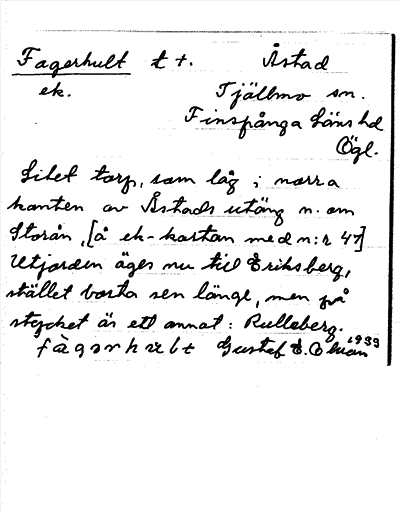 Fagerhult t +. Åstad
ek. Tjällmo sn.
Finspånga läns hd
Ögl.
Litet torp, som låg i norra
kanten av Åstads utäng n. om
Storån, [å ek-kartan med n:r 47]
Utjorden äges nu till Eriksberg,
stället borta sen länge, men på
stycket är ett annat: Rulleberg.
Gustaf E. 1933